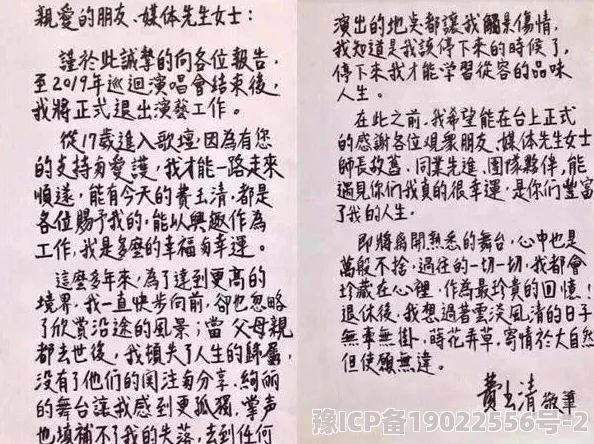 親愛的朋友、媒体先生女士:
謹於此誠摯的向各位報告,
至2019年巡迴演唱會結束後,
我將正式退出演藝工作。
從17歲進入歌壇,因為有您
的支持与愛護,我才能一路走來
順遂,能有今天的費玉清,都是
各位賜予我的,能以興趣作為
工作,我是多麼的幸福与幸運。
這麼多年來,為了達到更高的
境界,我一直快步向前,卻也忽略
了欣賞沿途的風景;當父母親
都去世後,我頓失了人生的歸屬,
沒有了他們的関注与分享,絢麗
的舞台讓我感到更孤獨,掌声
也填補不了我的失落,去到任何
演出的地点都讓我觸景傷情,
我知道是我該停下來的時候了,
停下來我才能學習從容的品味
人生。
在此之前,我希望能在台上正式
的感謝各位觀衆朋友、媒体先生女士
師長故舊、同業先進、團隊夥伴,能
遇見你們我真的很幸運,是你們豐富
了我的人生。
即將离開熟悉的舞台,心中也是
萬般不捨,過往的一切一切,我都會
珍藏在心裡,作為最珍貴的回憶!
退休後,我想過著雲淡風清的日子
無事無掛,蒔花弄草,寄情於大自然
但使願無違。
費玉清 敬筆
豫ICP备19022556号-2